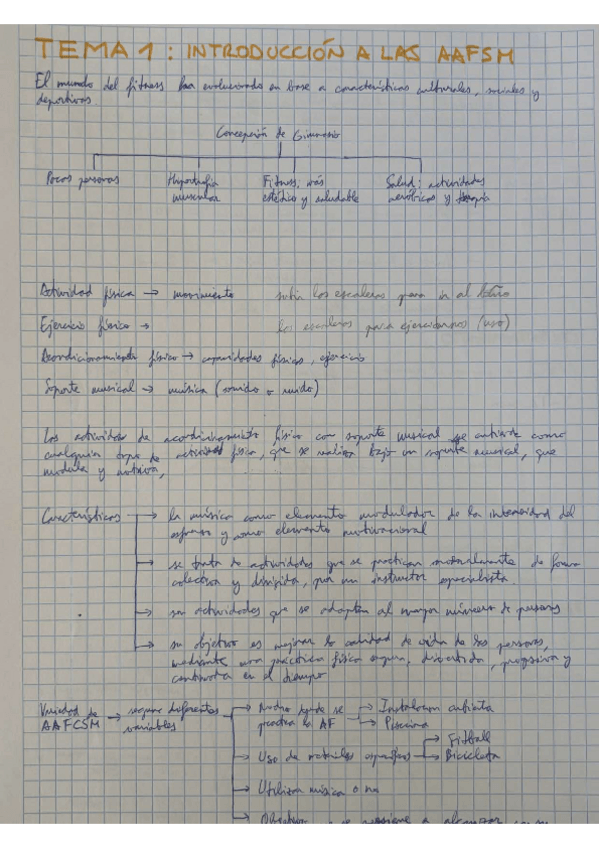 TEMA 1: INTRODUCCIÓN A LAS AAFSM
El mundo del fitness ha evolucionado en base a características culturales, sociales y
deportivas
Concepción de Gimnasio
Pocas personas
Hipertrofia
muscular
Fitness: más
estético y saludable
Salud: actividades
aeróbicas y terapia
Actividad física → movimiento subir las escaleras para ir al baño
Ejercicio físico → las escaleras para ejercitarnos (uso)
Acondicionamiento físico → capacidades físicas, ejercicio
Soporte musical → música (sonido o ruido)
Las actividades de acondicionamiento físico con soporte musical se entiende como
cualquier tipo de actividad física, que se realiza bajo un soporte musical, que
modula y motiva,
Características → la música como elemento modulador de la intensidad del
esfuerzo y como elemento motivacional
→ se trata de actividades que se practican de forma
colectiva y dirigida, por un instructor especialista
→ son actividades que se adaptan al mayor número de personas
→ su objetivo es mejorar la calidad de vida de las personas,
mediante una práctica física segura, divertida, progresiva y
continuada en el tiempo
Variedad de
AAFCSM → según diferentes
variables
→ donde se
practica la AF → Instalación cubierta
→ Piscina
→ Uso de materiales específicos → Fitball
→ Bicicleta
→ Utilizar música o no
→ Objetivos